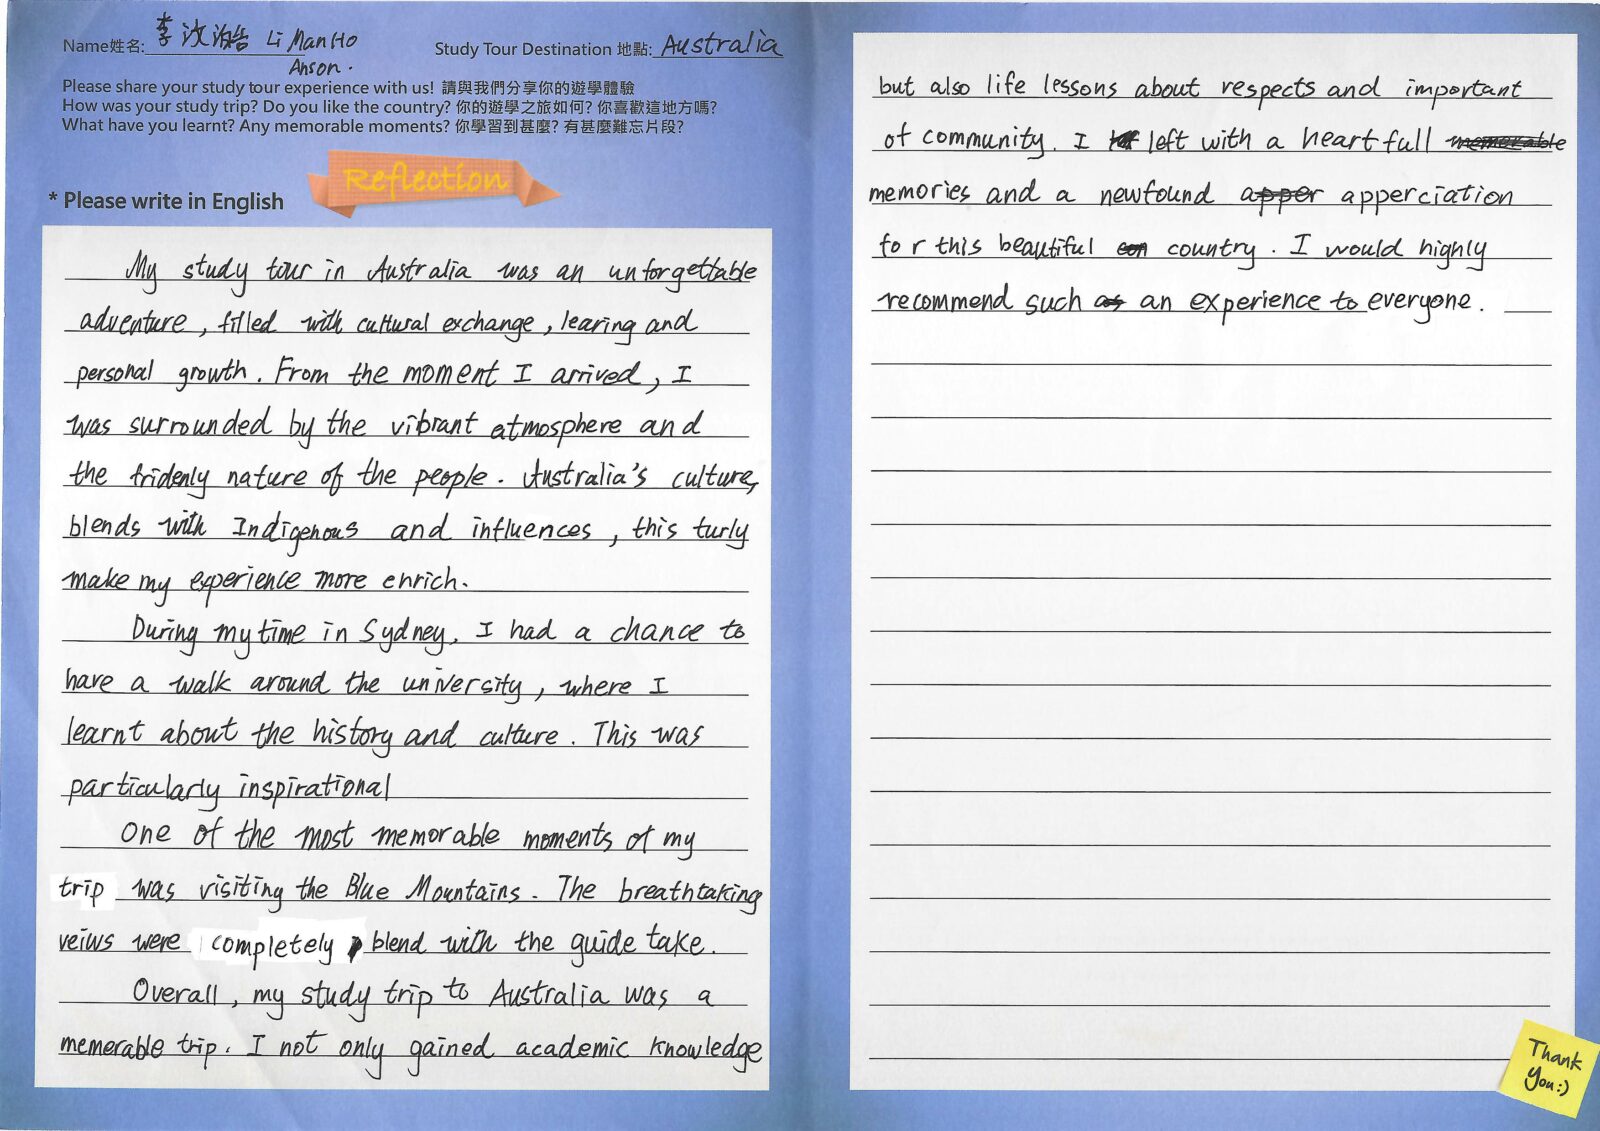 Name姓名: 李汶浩 Li Man Ho
Anson.
Study Tour Destination 地點: Australia
Please share your study tour experience with us! 請與我們分享你的遊學體驗
How was your study trip? Do you like the country? 你的遊學之旅如何? 你喜歡這地方嗎?
What have you learnt? Any memorable moments? 你學習到甚麼? 有甚麼難忘片段?
Reflection
* Please write in English
My study tour in Australia was an unforgettable
adventure, filled with cultural exchange, learing and
personal growth. From the moment I arrived, I
was surrounded by the vibrant atmosphere and
the fridenly nature of the people. Australia's culture,
blends with Indigenous and influences, this turly
make my experience more enrich.
During my time in Sydney, I had a chance to
have a walk around the university, where I
learnt about the history and culture. This was
particularly inspirational
One of the most memorable moments of my
trip was visiting the Blue Mountains. The breathtaking
veiws were completely blend with the guide take.
Overall, my study trip to Australia was a
memerable trip. I not only gained academic knowledge
but also life lessons about respects and important
of community. I left with a heart full memorable
memories and a newfound apper apperciation
for this beautiful con country. I would highly
recommend such as an experience to everyone.
Thank
You:)